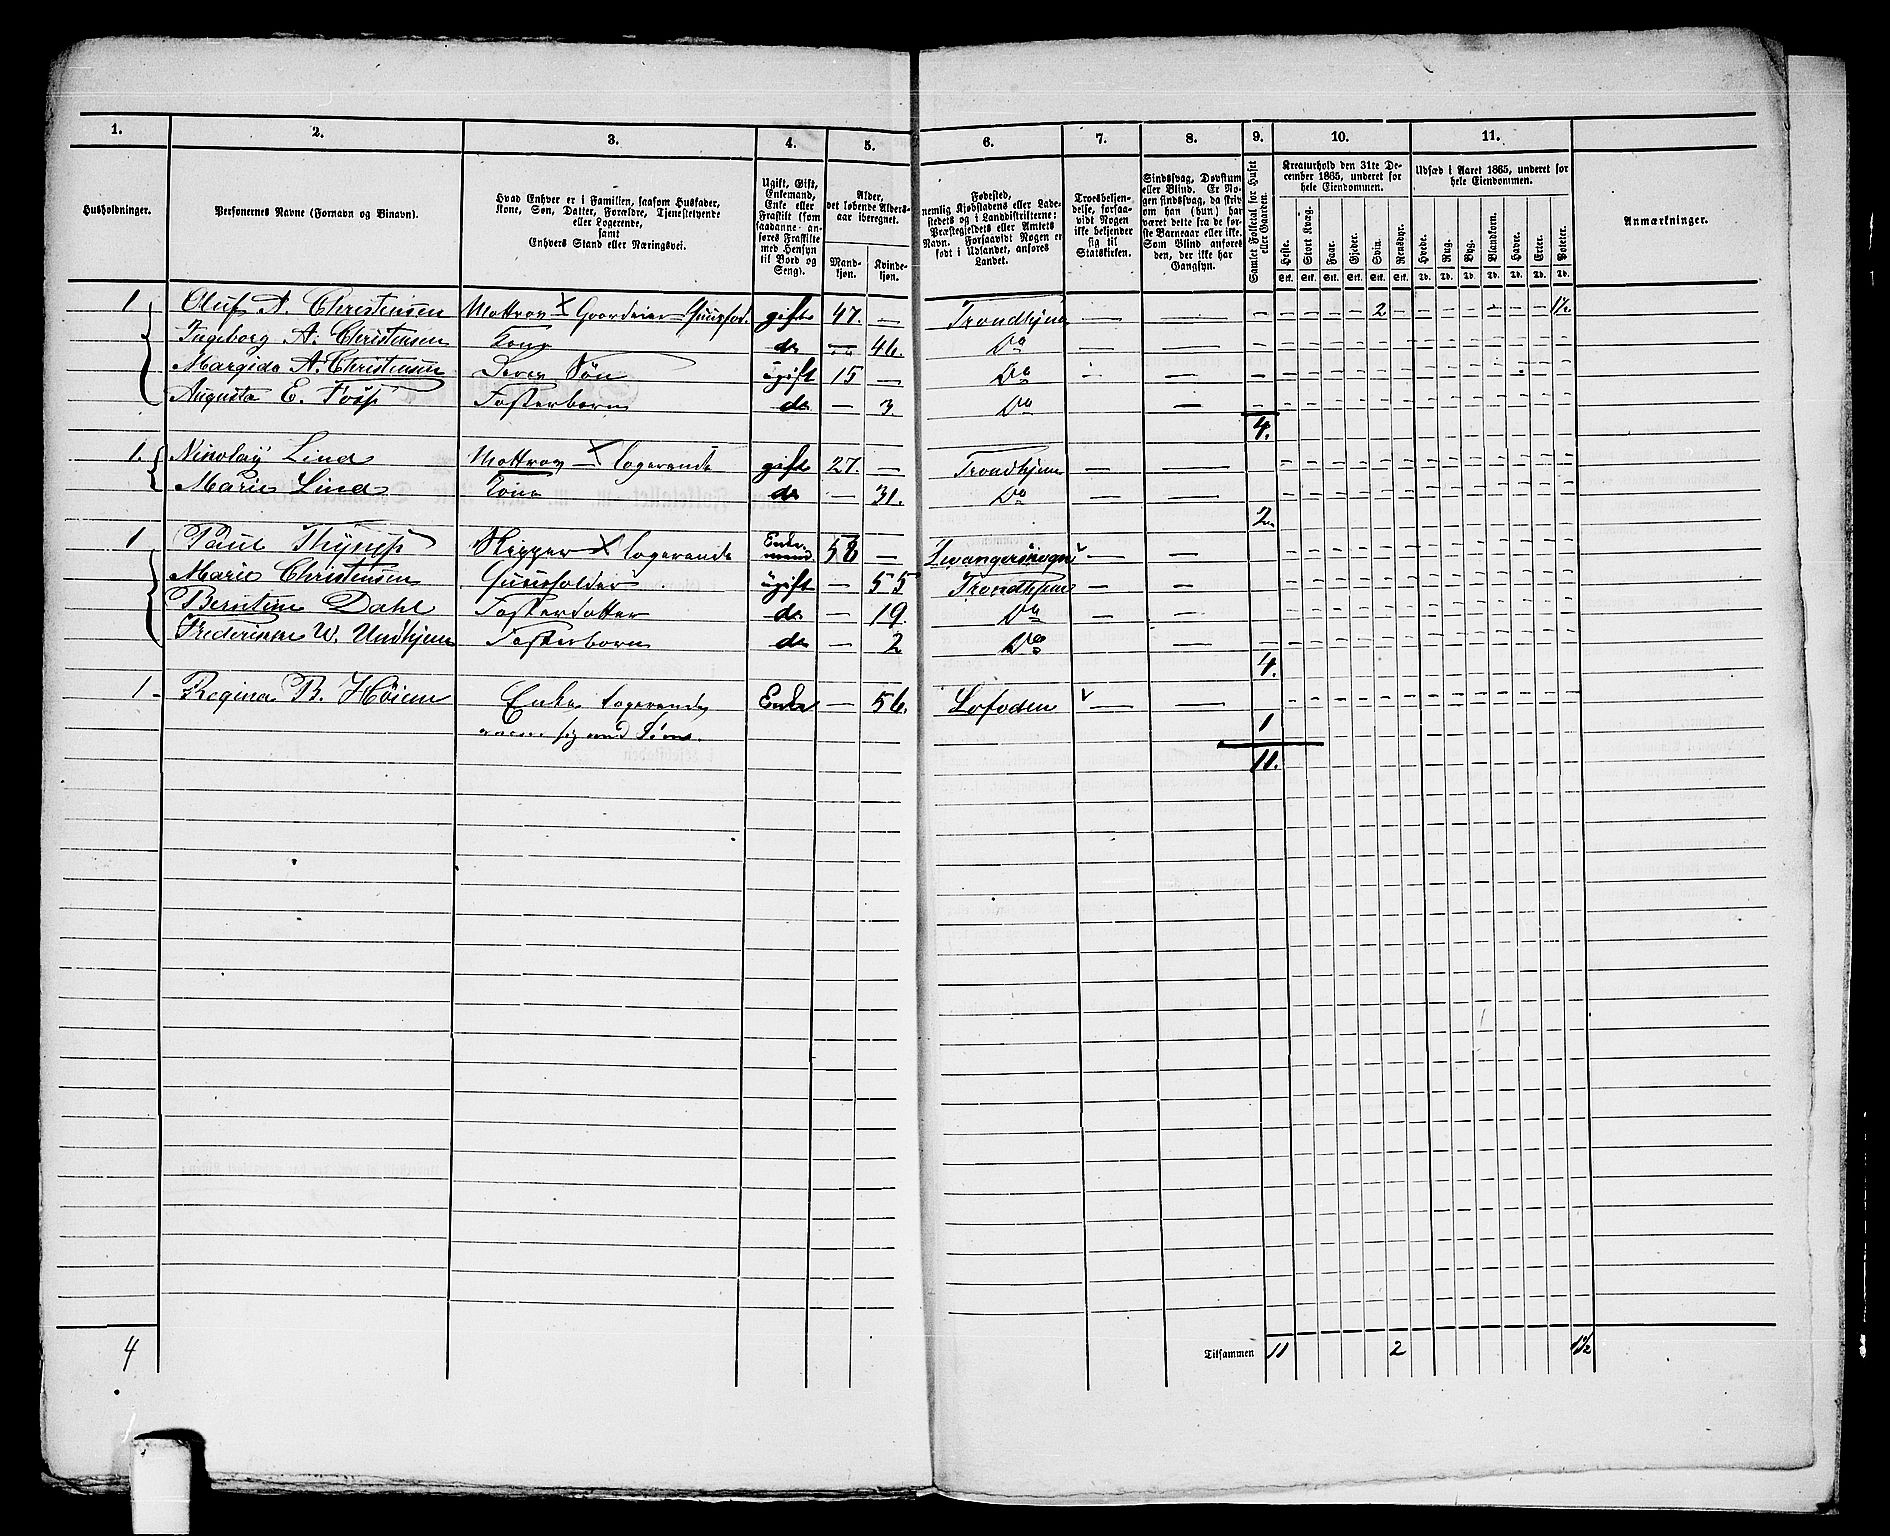 1. 2. 3. 4. 5. 6. 7. 8. 9. 10. 11.
Husholdninger.
Personernes Navne (Fornavn og Binavn).
Hvad Enhver er i Familien, saasom Husfader,
Kone, Søn, Datter, Forældre, Tjenestetyende
eller Logerende,
samt
Enhvers Stand eller Næringsvei.
Ugift, Gift,
Enkemand,
Enke eller
Fraskilt (som
saadanne anføres Fraskilte
med Hensyn
til Bord og
Seng).
Alder,
det løbende Aldersaar iberegnet.
Mandkjøn.
Kvindekjøn.
Fødested,
nemlig Kjøbstadens eller Ladestedets og i Landdistrikterne:
Præstegjeldets eller Amtets
Navn. Forsaavidt Nogen er
født i Udlandet, anføres
Landet.
Troesbekjendelse, forsaavidt Nogen
ikke bekjender
sig til
Statskirken.
Sindssvag, Døvstum
eller Blind. Er Nogen sindssvag, da skrives
om han (hun) har
været dette fra de første Barneaar eller ikke.
Som Blind anføres
den, der ikke har
Gangsyn.
Samlet Folketal for Huset
eller Gaarden.
Kreaturhold den 31te December 1865, underet for
hele Eiendommen.
Heste. Stort Kvæg. Faar. Gjeder. Svin. Rensdyr.
Stk. Stk. Stk. Stk. Stk. Stk.
Udsæd i Aaret 1865, underet for
hele Eiendommen.
Hvede. Rug. Byg. Blandkorn. Havre. Erter. Poteter.
Td. Td. Td. Td. Td. Td. Td.
Anmærkninger.
1. Oluf A. Christensen Mattros X Gaardeier Huusfad. gift 47. — Trondhjem — — 2 1½
Ingeborg A. Christensen Kone do — 46. Do
Margido A. Christensen Deres Søn ugift 15 — Do
Augusta E. Foss Fosterbarn do — 3 Do
4.
1. Nicolay Lind Mattros X logerende gift 27. — Trondhjem
Marie Lind Kone do — 31. Do
2
1 Paul Skipper X logerende Enkemand 58 — Levanger
Marie Christensen Huusholder ugift — 55 Trondhjem
Berntine Dahl Fosterdatter do — 19. Do
Frederikke W. Undhjem Fosterbarn do — 2 Do
4.
1 - Regina B. Høiem Enke logerende Enke — 56. Lofoden
sig med
1
11.
4 Tilsammen 11 2 1½